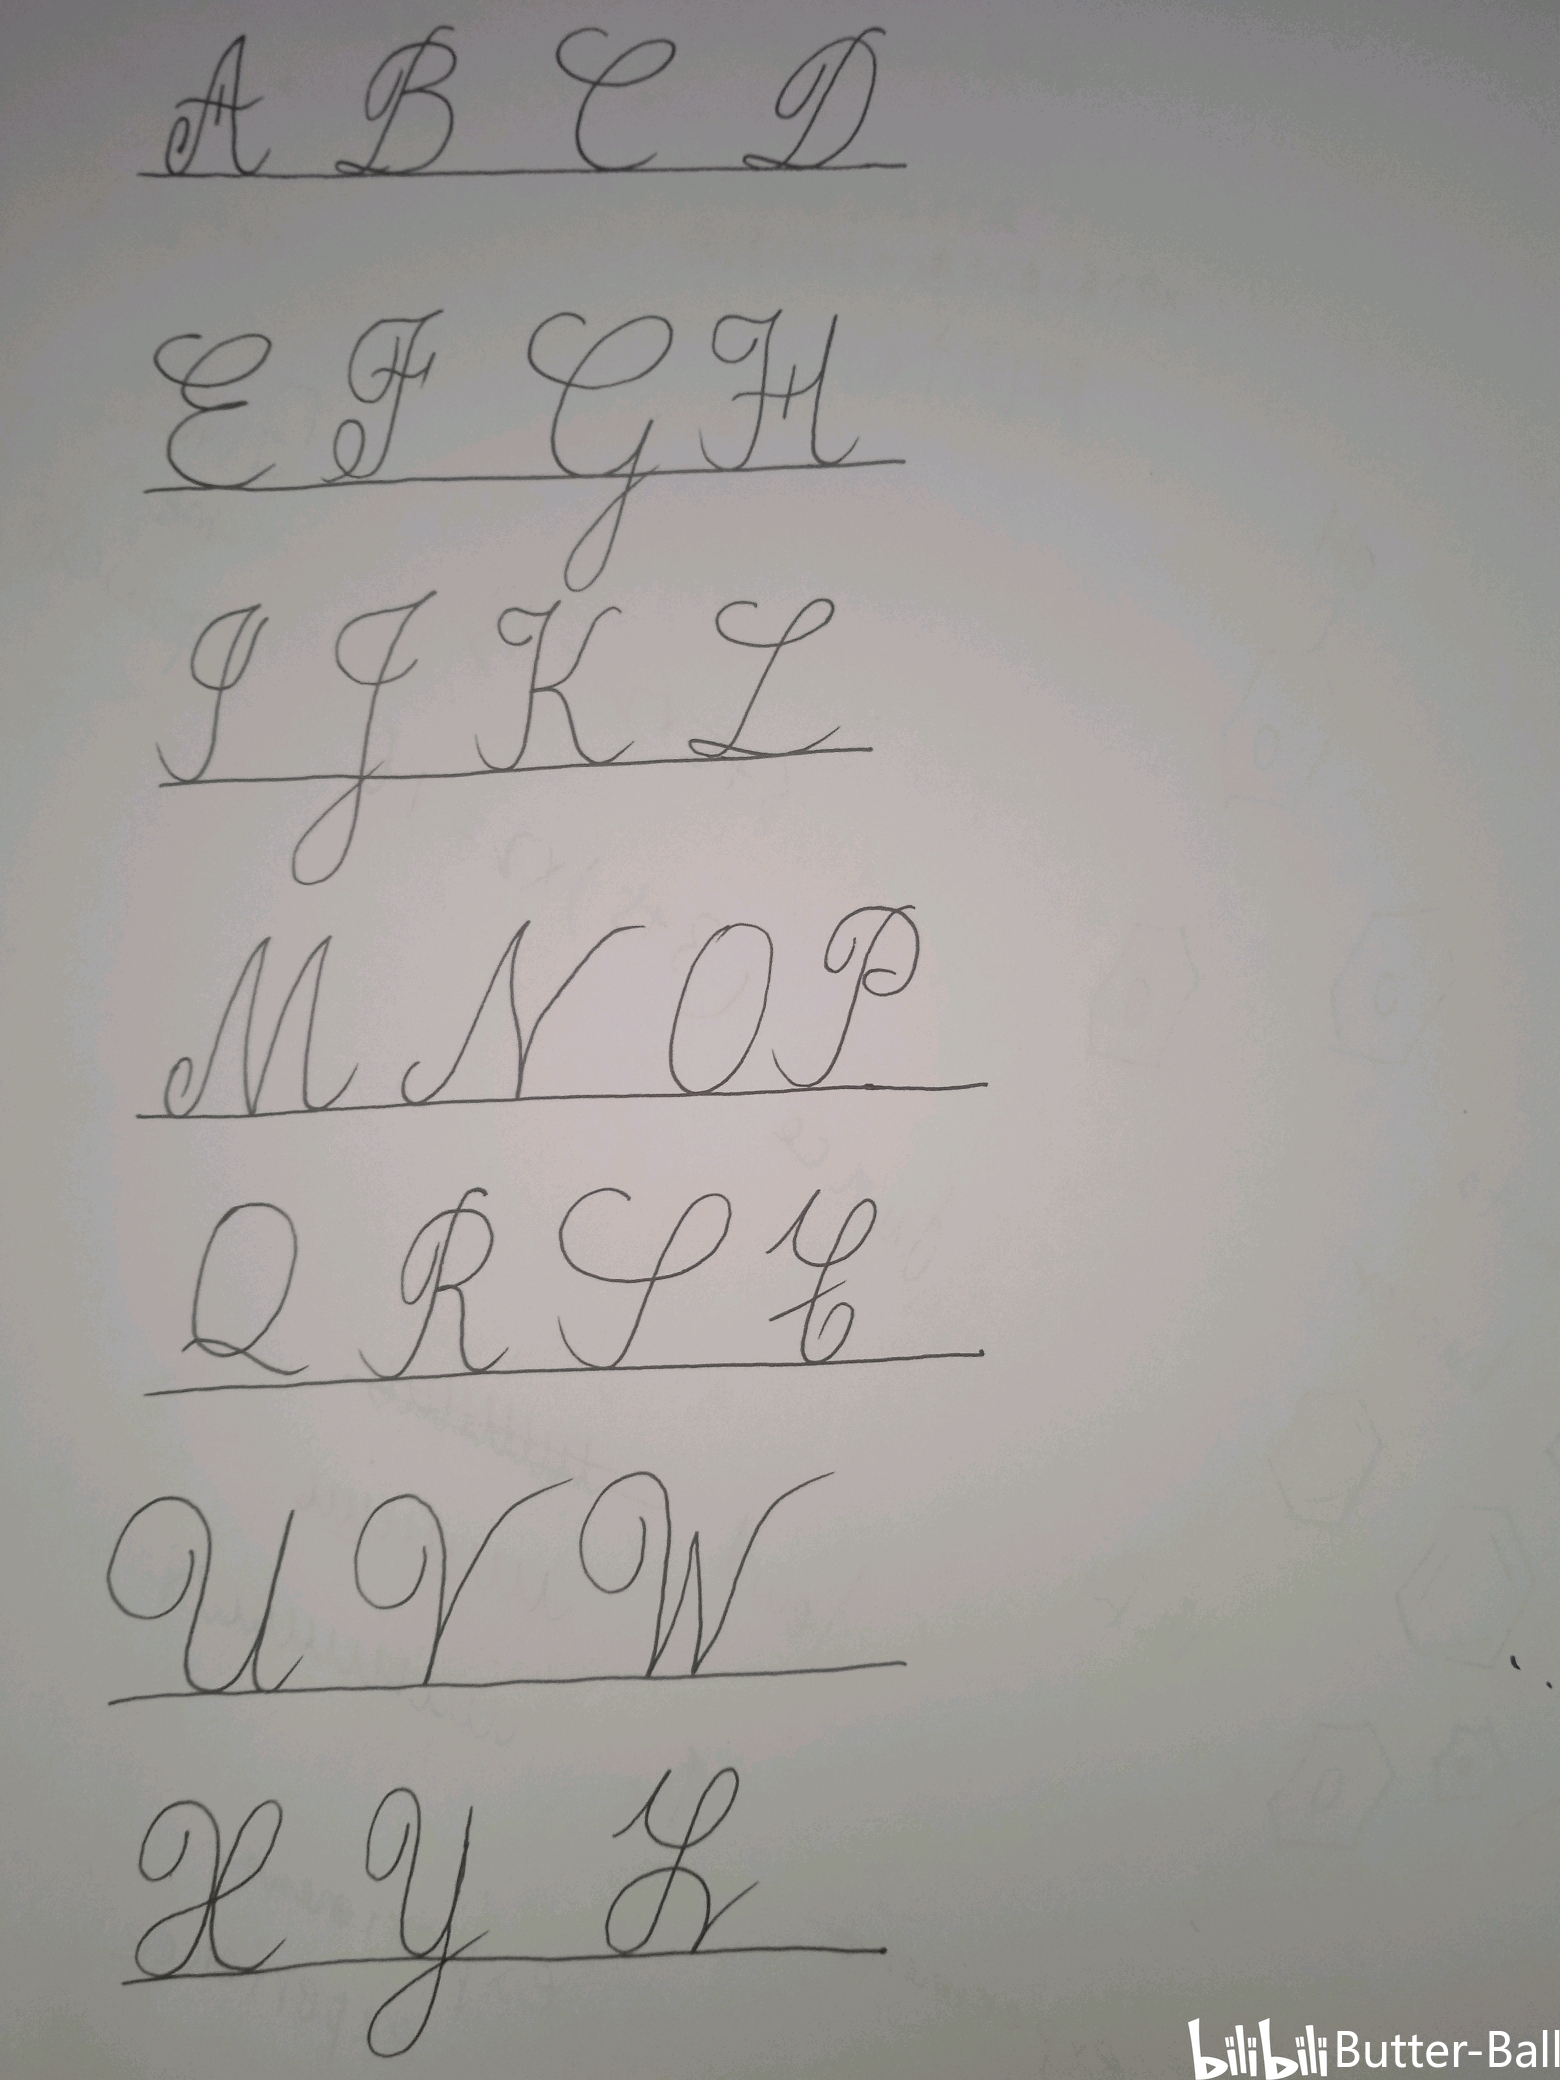 A B C D
E F G H
I J K L
M N O P
Q R S T
U V W
X Y Z
bilibili Butter-Ball